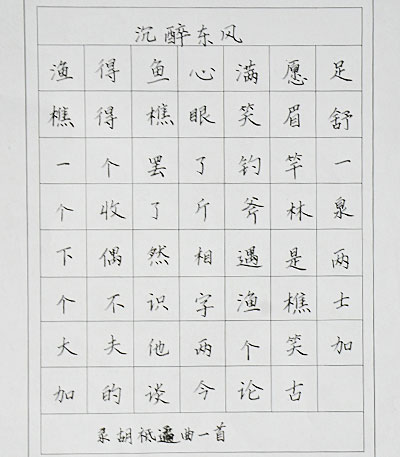 沉醉东风
渔得鱼心满愿足
樵得樵眼笑眉舒
一个罢了钓竿一
个收了斤斧林泉
下偶然相遇是两
个不识字渔樵士
大夫他两个笑加
加的谈今论古
录胡祗遹曲一首